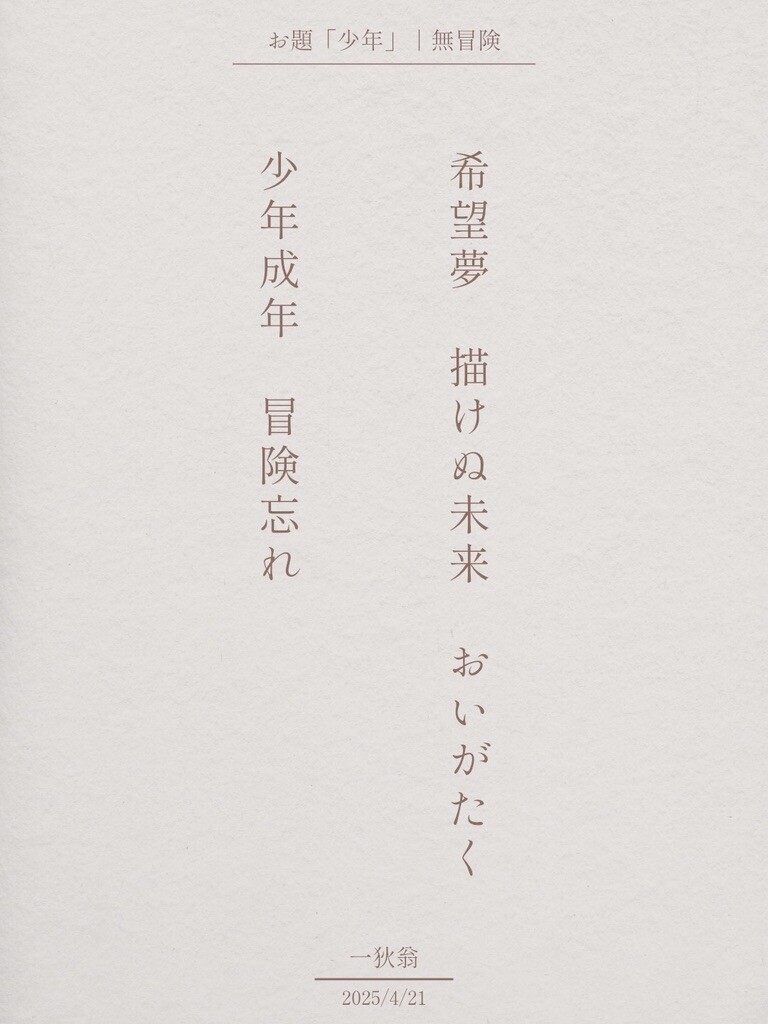 お題「少年」｜無冒険
希望夢　描けぬ未来　おいがたく
少年成年　冒険忘れ
一狄翁
2025/4/21